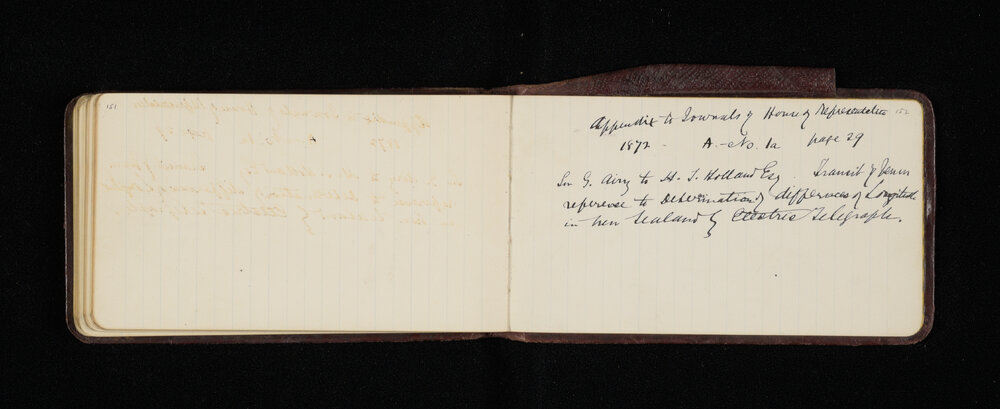 151
152
Appendix to Journals of House of Representatives
1872 - A.-No. 1a page 29
Sir G. Airy to H. T. Holland Esq. Transit of Venus
reference to Determination of differences of Longitude
in New Zealand by Electric Telegraph.